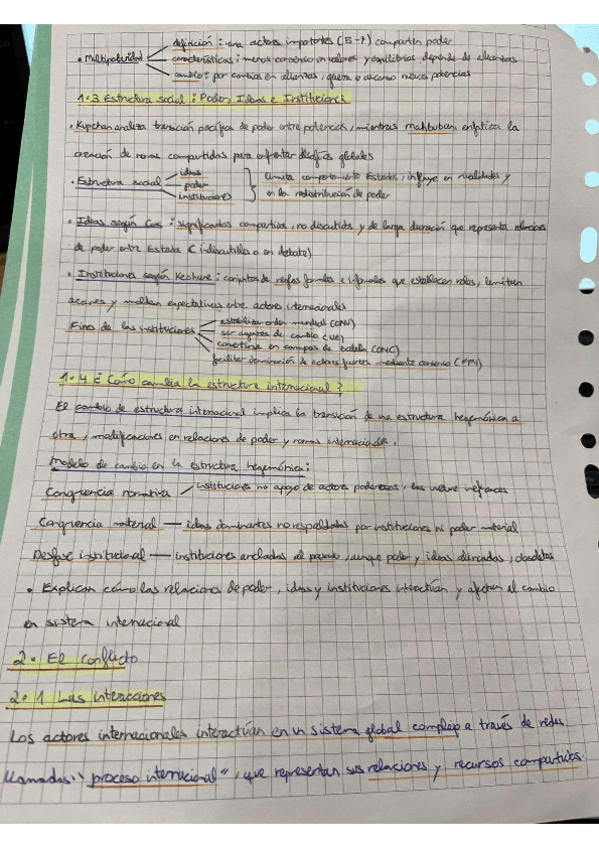 definición: una actores importantes (5-7) comparten poder
• Multipolaridad características: menos consenso en valores y equilibrios depende de alianzas
cambio: por cambios en alianzas, guerra o ascenso nuevas potencias
1.3 Estructura social: Poder, Ideas e Instituciones
• Kupchan analiza transición pacífica de poder entre potencias, mientras Mahbubani enfatiza la
creación de normas compartidas para enfrentar desafíos globales
• Estructura social ideas poder instituciones } limita comportamiento Estados, influye en rivalidades y
en la redistribución de poder
• Ideas según Cox: significados compartidos, no discutidos y de larga duración que representa relaciones
de poder entre Estado (indiscutibles o en debate)
• Instituciones según Keohane: conjuntos de reglas formales e informales que establecen roles, limitan
acciones y moldean expectativas entre actores internacionales
Fines de las instituciones
estabilizar orden mundial (ONU)
ser agentes de cambio (UE)
convertirse en campos de batalla (OMC)
facilitar dominación de actores fuertes mediante consenso (FMI)
1.4 ¿Cómo cambia la estructura internacional?
El cambio de estructura internacional implica la transición de una estructura hegemónica a
otra, modificaciones en relaciones de poder y normas internacionales.
Modelo de cambio en la estructura hegemónica:
Congruencia normativa / instituciones no apoyo de actores poderosos, las vuelve ineficaces
Congruencia material — ideas dominantes no respaldadas por instituciones ni poder material
Desfase institucional — instituciones ancladas al pasado, aunque poder y ideas alineadas, obsoletas
• Explican cómo las relaciones de poder, ideas y instituciones interactúan y afectan al cambio
en sistema internacional
2. El conflicto
2.1 Las interacciones
Los actores internacionales interactúan en un sistema global complejo a través de redes
llamadas "proceso internacional", que representan sus relaciones y recursos compartidos.